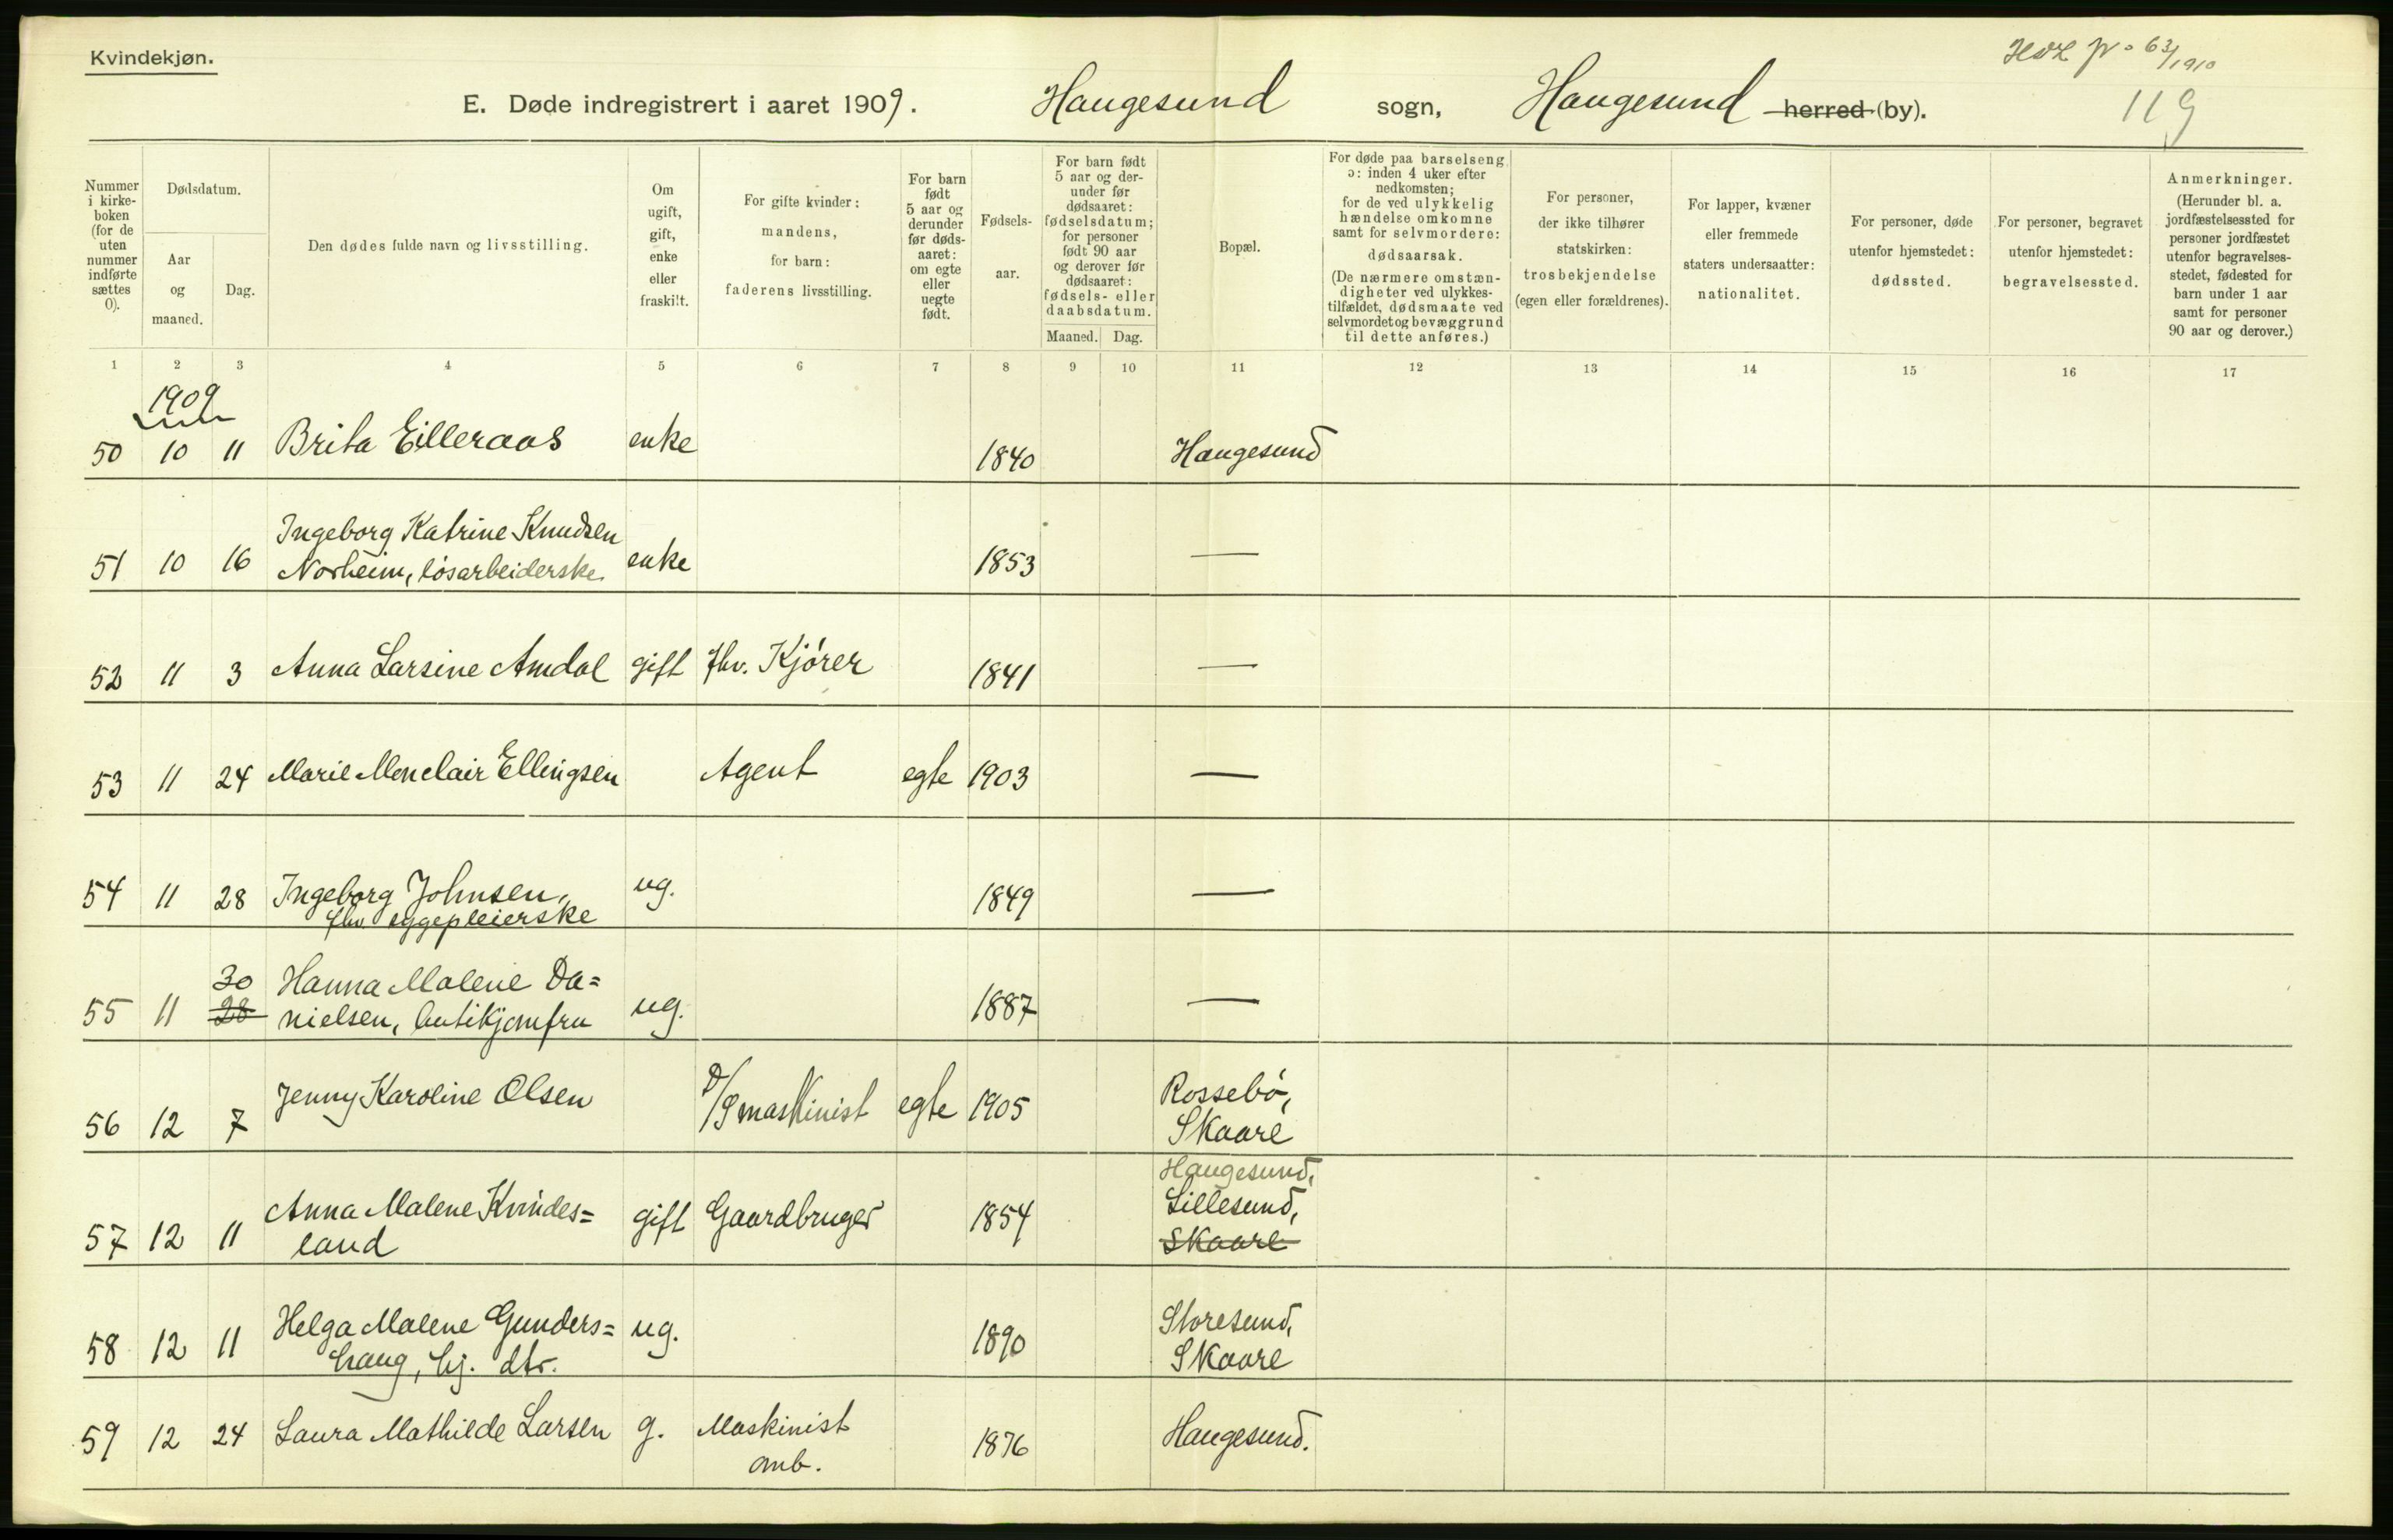 Kvindekjøn.
63/1910
119
E. Døde indregistrert i aaret 1909. Haugesund sogn, Haugesund herred (by).
Nummer i kirke-boken (for de uten nummer indførte sættes 0).
Dødsdatum.
Aar og maaned.
Dag.
Den dødes fulde navn og livsstilling.
Om ugift, gift, enke eller fraskilt.
For gifte kvinder: mandens, for barn: faderens livsstilling.
For barn født 5 aar og derunder før døds-aaret: om egte eller uegte født.
Fødsels-aar.
For barn født 5 aar og der-under før dødsaaret: fødselsdatum; for personer født 90 aar og derover før dødsaaret: fødsels- eller daabsdatum.
Maaned. Dag.
Bopæl.
For døde paa barselseng ɔ: inden 4 uker efter nedkomsten; for de ved ulykkelig hændelse omkomne samt for selvmordere: dødsaarsak. (De nærmere omstæn-digheter ved ulykkes-tilfældet, dødsmaate ved selvmordet og bevæggrund til dette anføres.)
For personer, der ikke tilhører statskirken: trosbekjendelse (egen eller forældrenes).
For lapper, kvæner eller fremmede staters undersaatter: nationalitet.
For personer, døde utenfor hjemstedet: dødssted.
For personer, begravet utenfor hjemstedet: begravelsessted.
Anmerkninger. (Herunder bl. a. jordfæstelsessted for personer jordfæstet utenfor begravelses-stedet, fødested for barn under 1 aar samt for personer 90 aar og derover.)
1 2 3 4 5 6 7 8 9 10 11 12 13 14 15 16 17
1909
50 10 11 Brita Eilleraas enke 1840 Haugesund
51 10 16 Ingeborg Katrine Knudsen
Norheim, løsarbeiderske enke 1853 —
52 11 3 Anna Larsine Amdal gift fhv. Kjører 1841 —
53 11 24 Marie Monclair Ellingsen Agent egte 1903 —
54 11 28 Ingeborg Johnsen, ug. 1849 —
fhv. sygepleierske
30 Hanna Malene Da=
55 11 28 nielsen, butikjomfru ug. 1887 —
56 12 7 Jenny Karoline Olsen D/S maskinist egte 1905 Rossebø,
Skaare
Haugesund,
57 12 11 Anna Malene Kvindes= gift Gaardbruger 1854 Lillesund,
land Skaare
58 12 11 Helga Malene Gunders= ug. 1890 Storesund,
haug, hj. dtr. Skaare
59 12 24 Laura Mathilde Larsen g. Maskinist 1876 Haugesund.
omb.